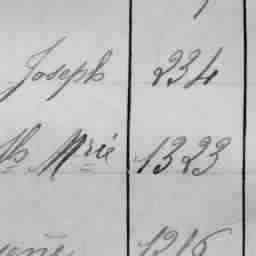 Joseph 234
th Mrie 1323
1216